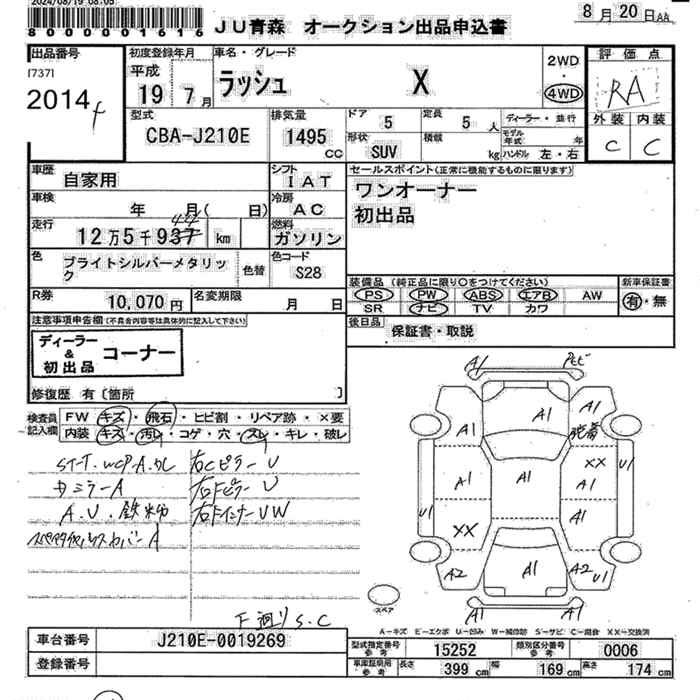 2024/08/19 08:05
8000001616
JU青森 オークション出品申込書
8月20日AA
出品番号
[737]
2014
初度登録年月
平成
19 7月
車名・グレード
ラッシュ X
2WD
・
4WD
評価点
RA
外装 内装
C C
型式
CBA-J210E
排気量
1495
CC
ドア 5
定員 5 人
形状 SUV
積載 kg
ディーラー・並行
モデル年式 年
ハンドル 左・右
車歴
自家用
シフト
IAT
車検
年 月( 日)
冷房
AC
走行
12万5千937 km
燃料
ガソリン
色
ブライトシルバーメタリック
色替
色コード
S28
R券
10,070円
名変期限
月 日
セールスポイント(正常に機能するものに限ります)
ワンオーナー
初出品
装備品(純正品に限り○をつけてください)
新車保証書
PS PW ABS エアB AW
SR ナビ TV カワ
有・無
後日品
保証書・取説
注意事項申告欄(不具合内容等は具体的に記入して下さい)
ディーラー
&
初出品
コーナー
修復歴 有〔箇所 〕
検査員
記入欄
FW キズ・飛石・ヒビ割・リペア跡・×要
内装 キズ・汚レ・コゲ・穴・スレ・キレ・破レ
右Cピラー U
ミラーA
右Fピラー U
A.U.
右Fインナー UW
カバーA
S.C
A1
A1
A1
A1
A1
XX
U1
A1
A1
A1
A1
U1
XX
A2
A1
A2
U1
A1
A1
スペア
A-キズ E-エクボ U-凹み W-補修跡 S-サビ C-腐食 XX-交換済
車台番号
J210E-0019269
登録番号
型式指定番号
参考
15252
類別区分番号
参考
0006
車庫証明用
参考
長さ 399 cm
幅 169 cm
高さ 174 cm